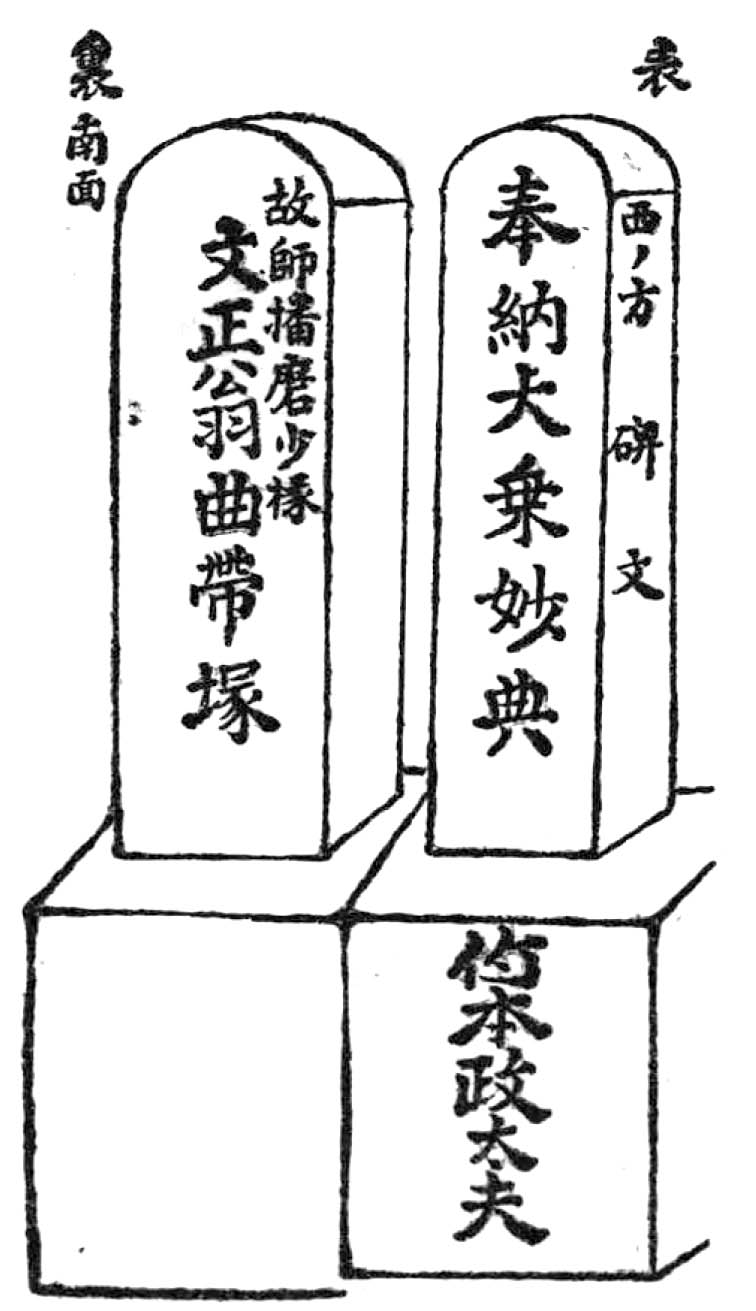 表
西ノ方 碑文
奉納大乗妙典
竹本政太夫
裏南面
故師播磨少掾
文正公羽曲帶塚